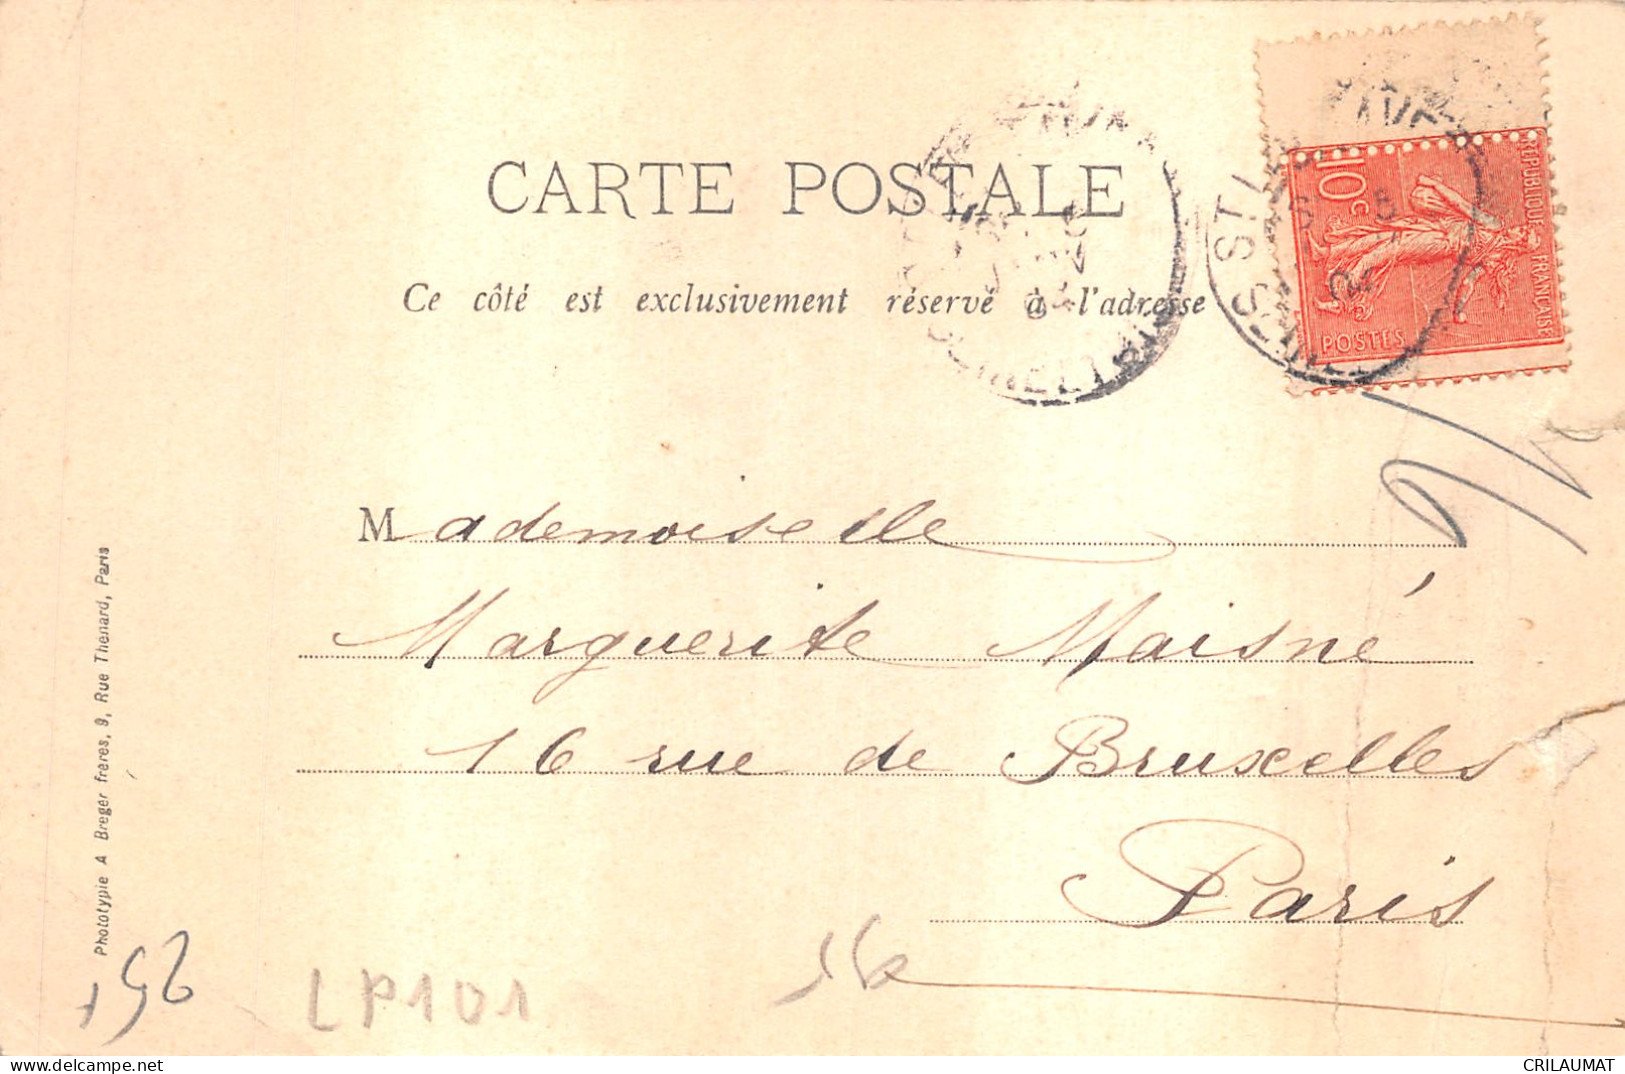 CARTE POSTALE
Ce côté est exclusivement réservé à l'adresse
10c
REPUBLIQUE FRANÇAISE
POSTES
ST LE
04
Mademoiselle
Marguerite Maisné
16 rue de Bruxelles
Paris
Phototypie A Breger frères, 9, Rue Thénard, Paris
LP101
16
CRILAUMAT